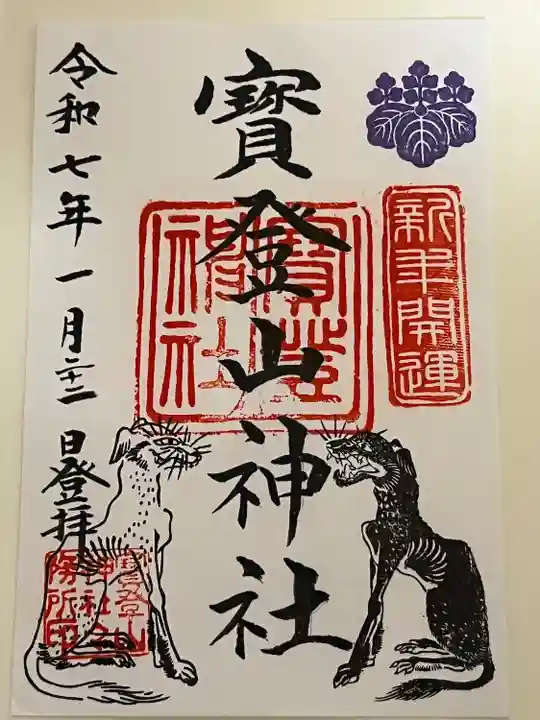 新年開運
寶登山神社
寶登
神社
令和七年一月二十二日登拝
寶登山
神社社
務所印